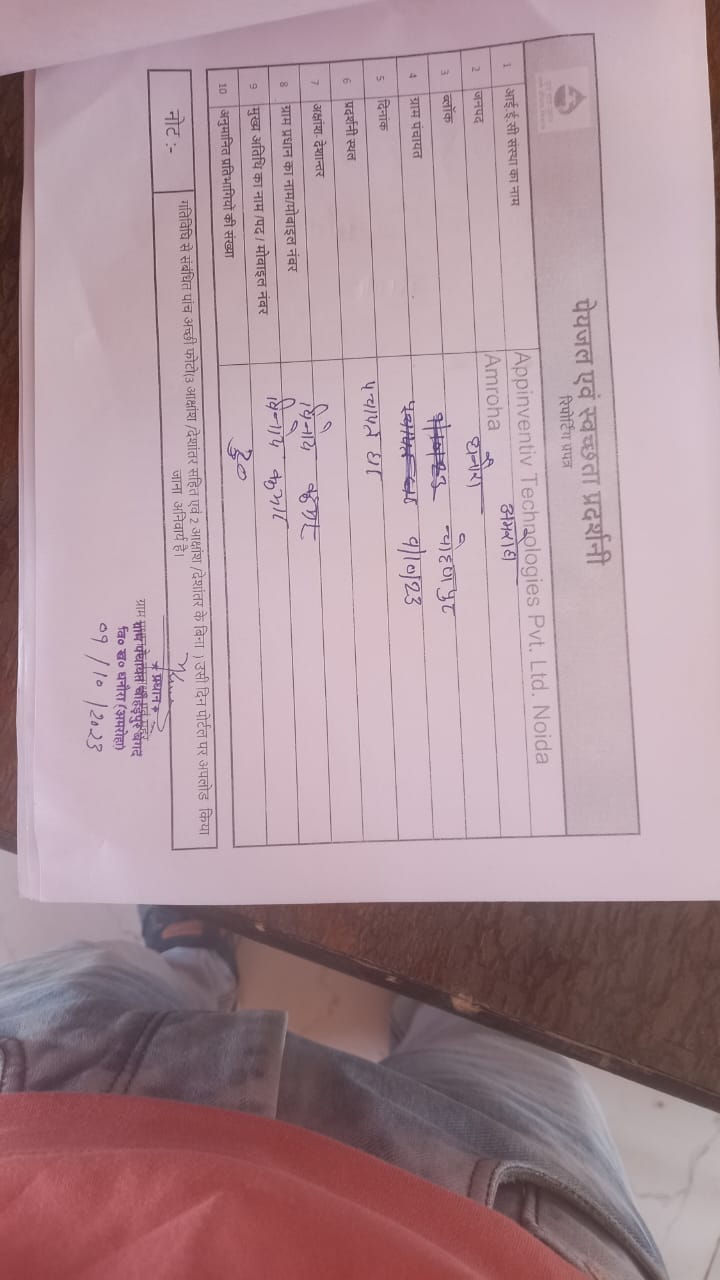 पेयजल एवं स्वच्छता प्रदर्शनी
रिपोर्टिंग प्रपत्र
1 आई.ई.सी संस्था का नाम Appinventiv Technologies Pvt. Ltd. Noida
2 जनपद Amroha अमरोहा
3 ब्लॉक धनौरा
4 ग्राम पंचायत
5 दिनांक 9/10/23
6 प्रदर्शनी स्थल पंचायत घर
7 अक्षांश. देशान्तर
8 ग्राम प्रधान का नाम/मोबाइल नंबर कुमार
9 मुख्य अतिथि का नाम /पद / मोबाइल नंबर कुमार
10 अनुमानित प्रतिभागियों की संख्या
नोट :-
गतिविधि से संबंधित पांच अच्छी फोटो(3 आक्षांश /देशांतर सहित एवं 2 आक्षांश /देशांतर के बिना ) उसी दिन पोर्टल पर अपलोड किया
जाना अनिवार्य है।
* प्रधान *
ग्राम
वि० ख० धनौरा (अमरोहा)
09/10/2023